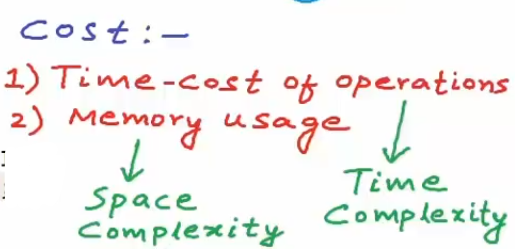 Cost:-
1) Time-cost of operations
2) Memory usage
Space
Complexity
Time
Complexity